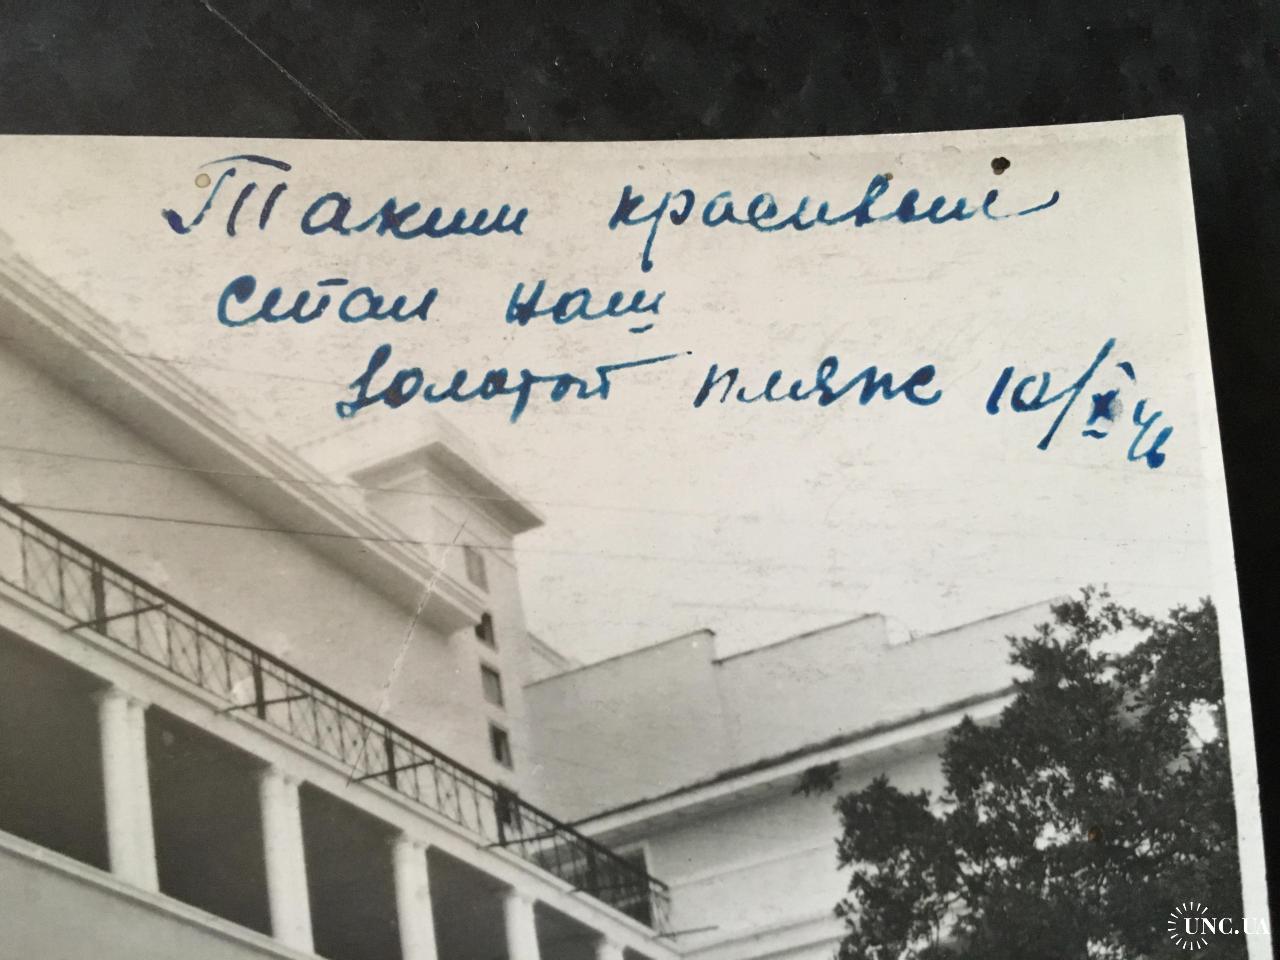 Таким красивым
стал наш
Золотой пляж 10/X 46
UNC.UA